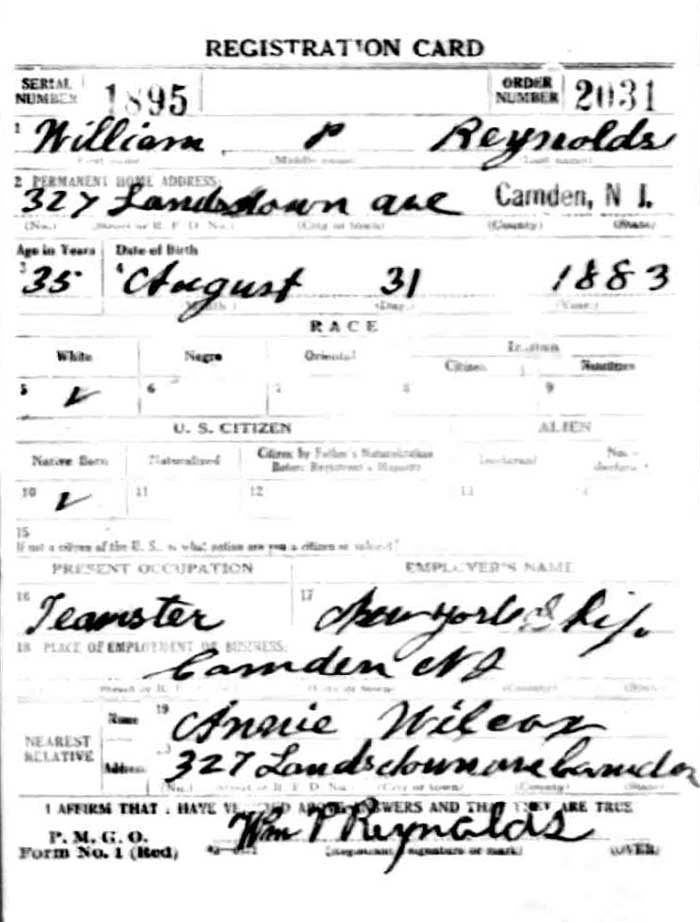 REGISTRATION CARD
SERIAL NUMBER 1895 ORDER NUMBER 2031
1 William P Reynolds
(First name) (Middle name) (Last name)
2 PERMANENT HOME ADDRESS:
327 Landsdown ave Camden, N J.
(No.) (Street or R. F. D. No.) (City or town) (County) (State)
Age in Years Date of Birth
3 35 4 August 31 1883
(Month) (Day) (Year)
RACE
White Negro Oriental Indian
Citizen Noncitizen
5 ✓ 6 7 8 9
U. S. CITIZEN ALIEN
Native Born Naturalized Citizen by Father's Naturalization Before Registrant's Majority Declarant Non-declarant
10 ✓ 11 12 13
15
If not a citizen of the U. S., of what nation are you a citizen or subject?
PRESENT OCCUPATION EMPLOYER'S NAME
16 Teamster 17 New York Ship.
18 PLACE OF EMPLOYMENT OR BUSINESS:
Camden NJ
(Street or R. F. D. No.) (City or town) (County) (State)
NEAREST RELATIVE
Name 19 Annie Wilcox
Address 327 Landsdown ave Camden
(No.) (Street or R. F. D. No.) (City or town) (County) (State)
I AFFIRM THAT I HAVE VERIFIED ABOVE ANSWERS AND THAT THEY ARE TRUE
P. M. G. O.
Form No. 1 (Red) Wm P Reynolds
(Registrant's signature or mark) (OVER)